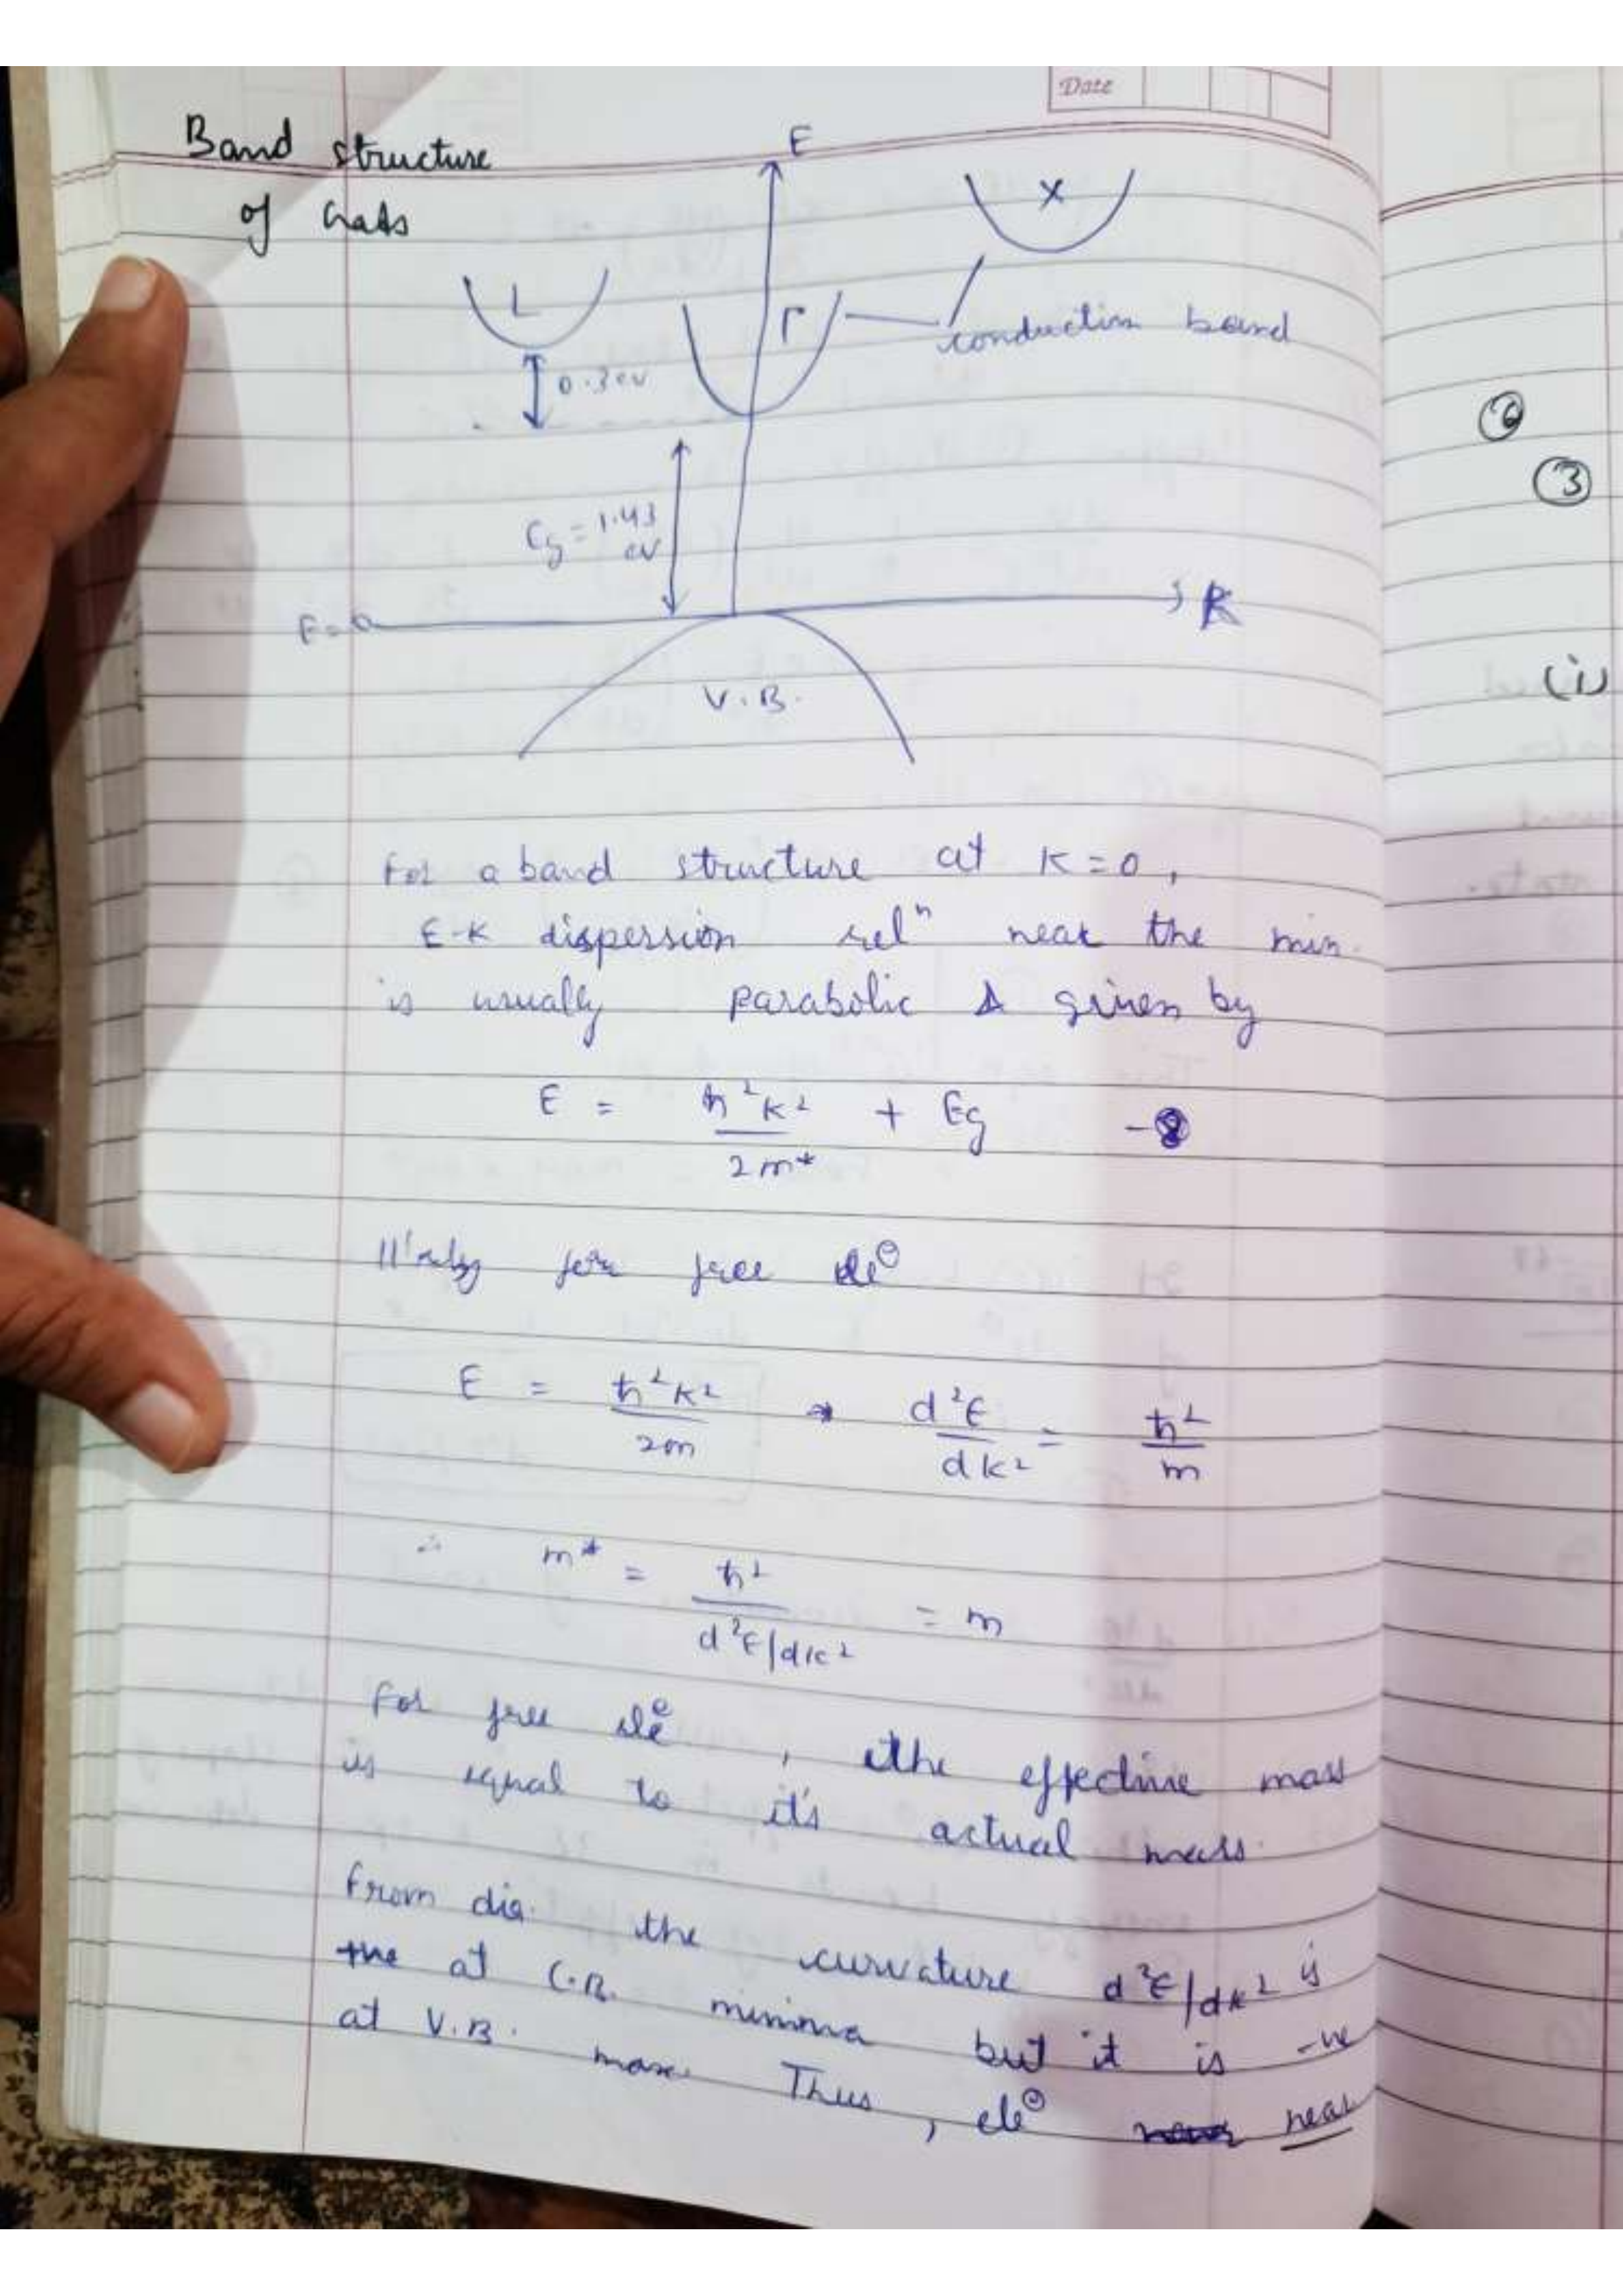 Date
Band structure
of GaAs
E
X
L
Γ
conduction band
0.3 eV
Eg = 1.43
eV
E=0
K
V.B.
For a band structure at K=0,
E-K dispersion relⁿ near the min.
is usually parabolic & given by
E = ħ²K² / 2m* + Eg
111'rly for free ele⊖
E = ħ²K² / 2m → d²E / dK² = ħ² / m
∴ m* = ħ² / d²E/dK² = m
For free ele⊖, the effective mass
is equal to it's actual mass.
From dia. the curvature d²E/dK² is
+ve at C.B. minima but it is -ve
at V.B. max. Thus, ele⊖ near
③
(i)